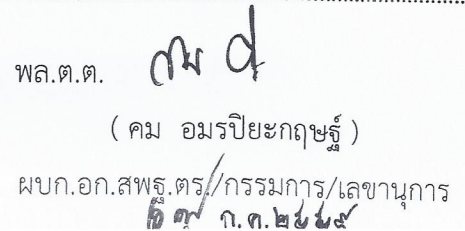 พล.ต.ต.
( คม อมรปิยะกฤษฐ์ )
ผบก.อก.สพฐ.ตร./กรรมการ/เลขานุการ
ก.ค.